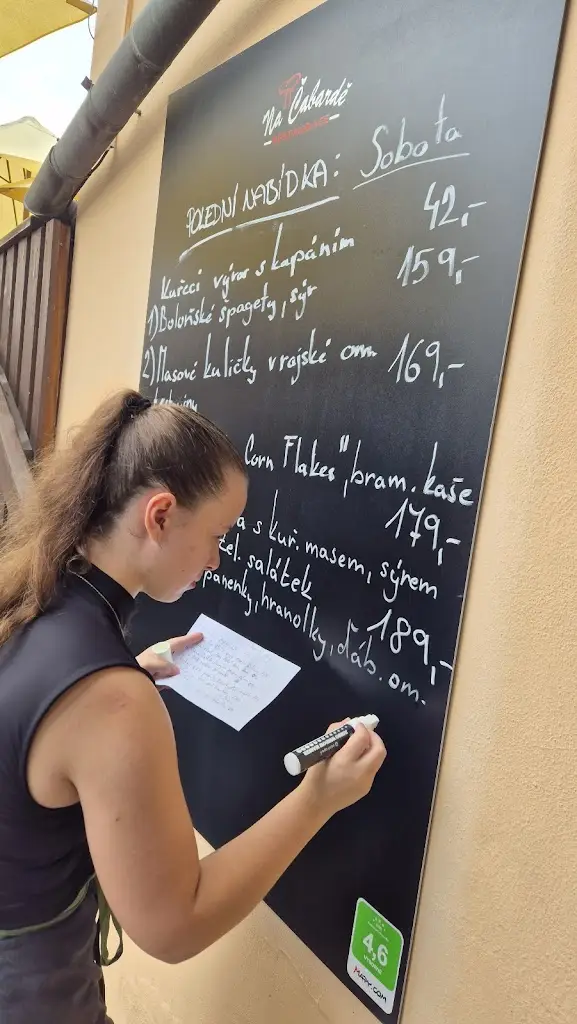 Na Čabardě
RESTAURACE
POLEDNÍ NABÍDKA: Sobota
Kuřecí vývar s kapáním 42,-
1) Boloňské špagety, sýr 159,-
2) Masové kuličky v rajské om. 169,-
Corn Flakes", bram. kaše
179,-
a s kuř. masem, sýrem
zel. salátek
189,-
panenky, hranolky, ďáb. om.
4,6
Mapy.com